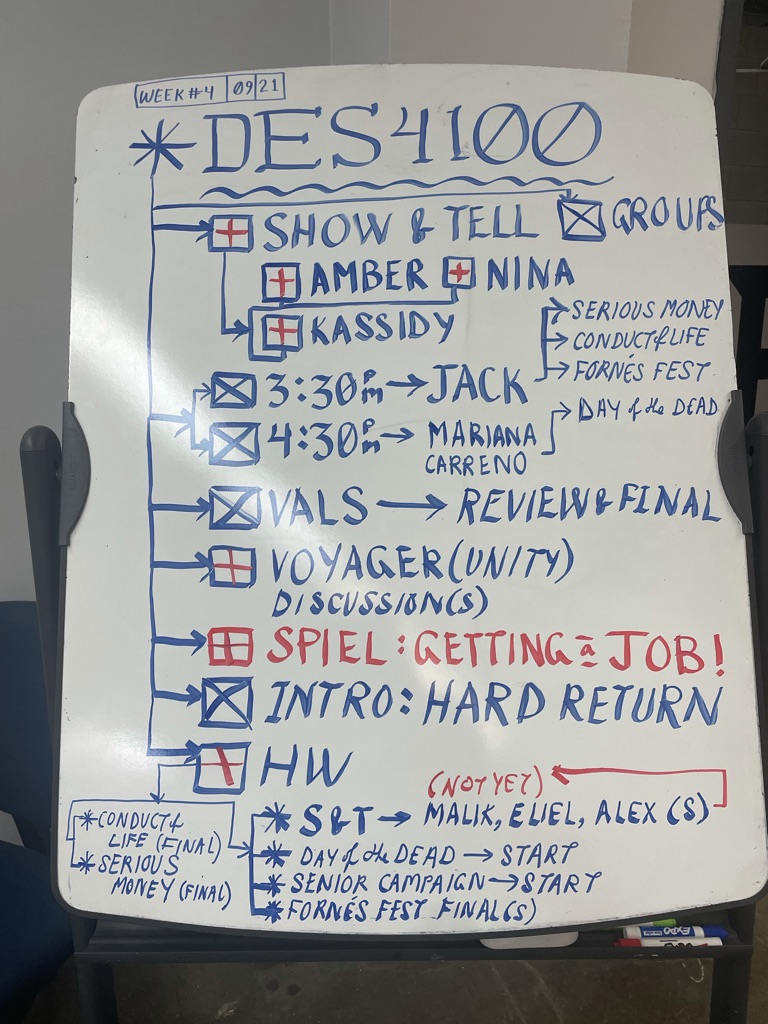 WEEK #4 09 21
DES4100
SHOW & TELL GROUPS
AMBER NINA
KASSIDY
SERIOUS MONEY
CONDUCT of LIFE
FORNÉS FEST
3:30pm → JACK
DAY of the DEAD
4:30pm → MARIANA
CARRENO
VALS → REVIEW & FINAL
VOYAGER (UNITY)
DISCUSSION(S)
SPIEL: GETTING a JOB!
INTRO: HARD RETURN
HW
(NOT YET)
S&T → MALIK, ELIEL, ALEX (S)
DAY of the DEAD → START
SENIOR CAMPAIGN → START
FORNÉS FEST FINAL(S)
CONDUCT of
LIFE (FINAL)
SERIOUS
MONEY (FINAL)
EXPO
EXPO